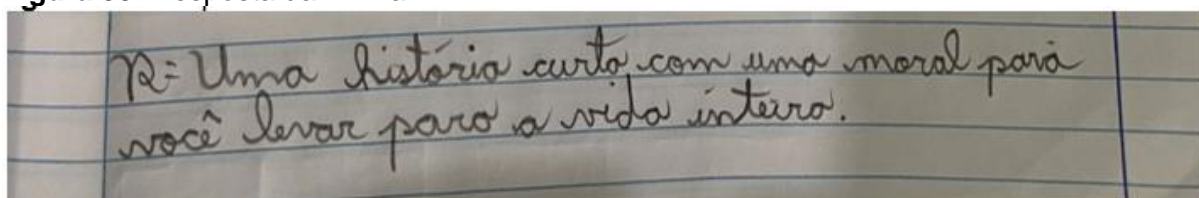 R= Uma história curta, com uma moral para
você levar para a vida inteira.